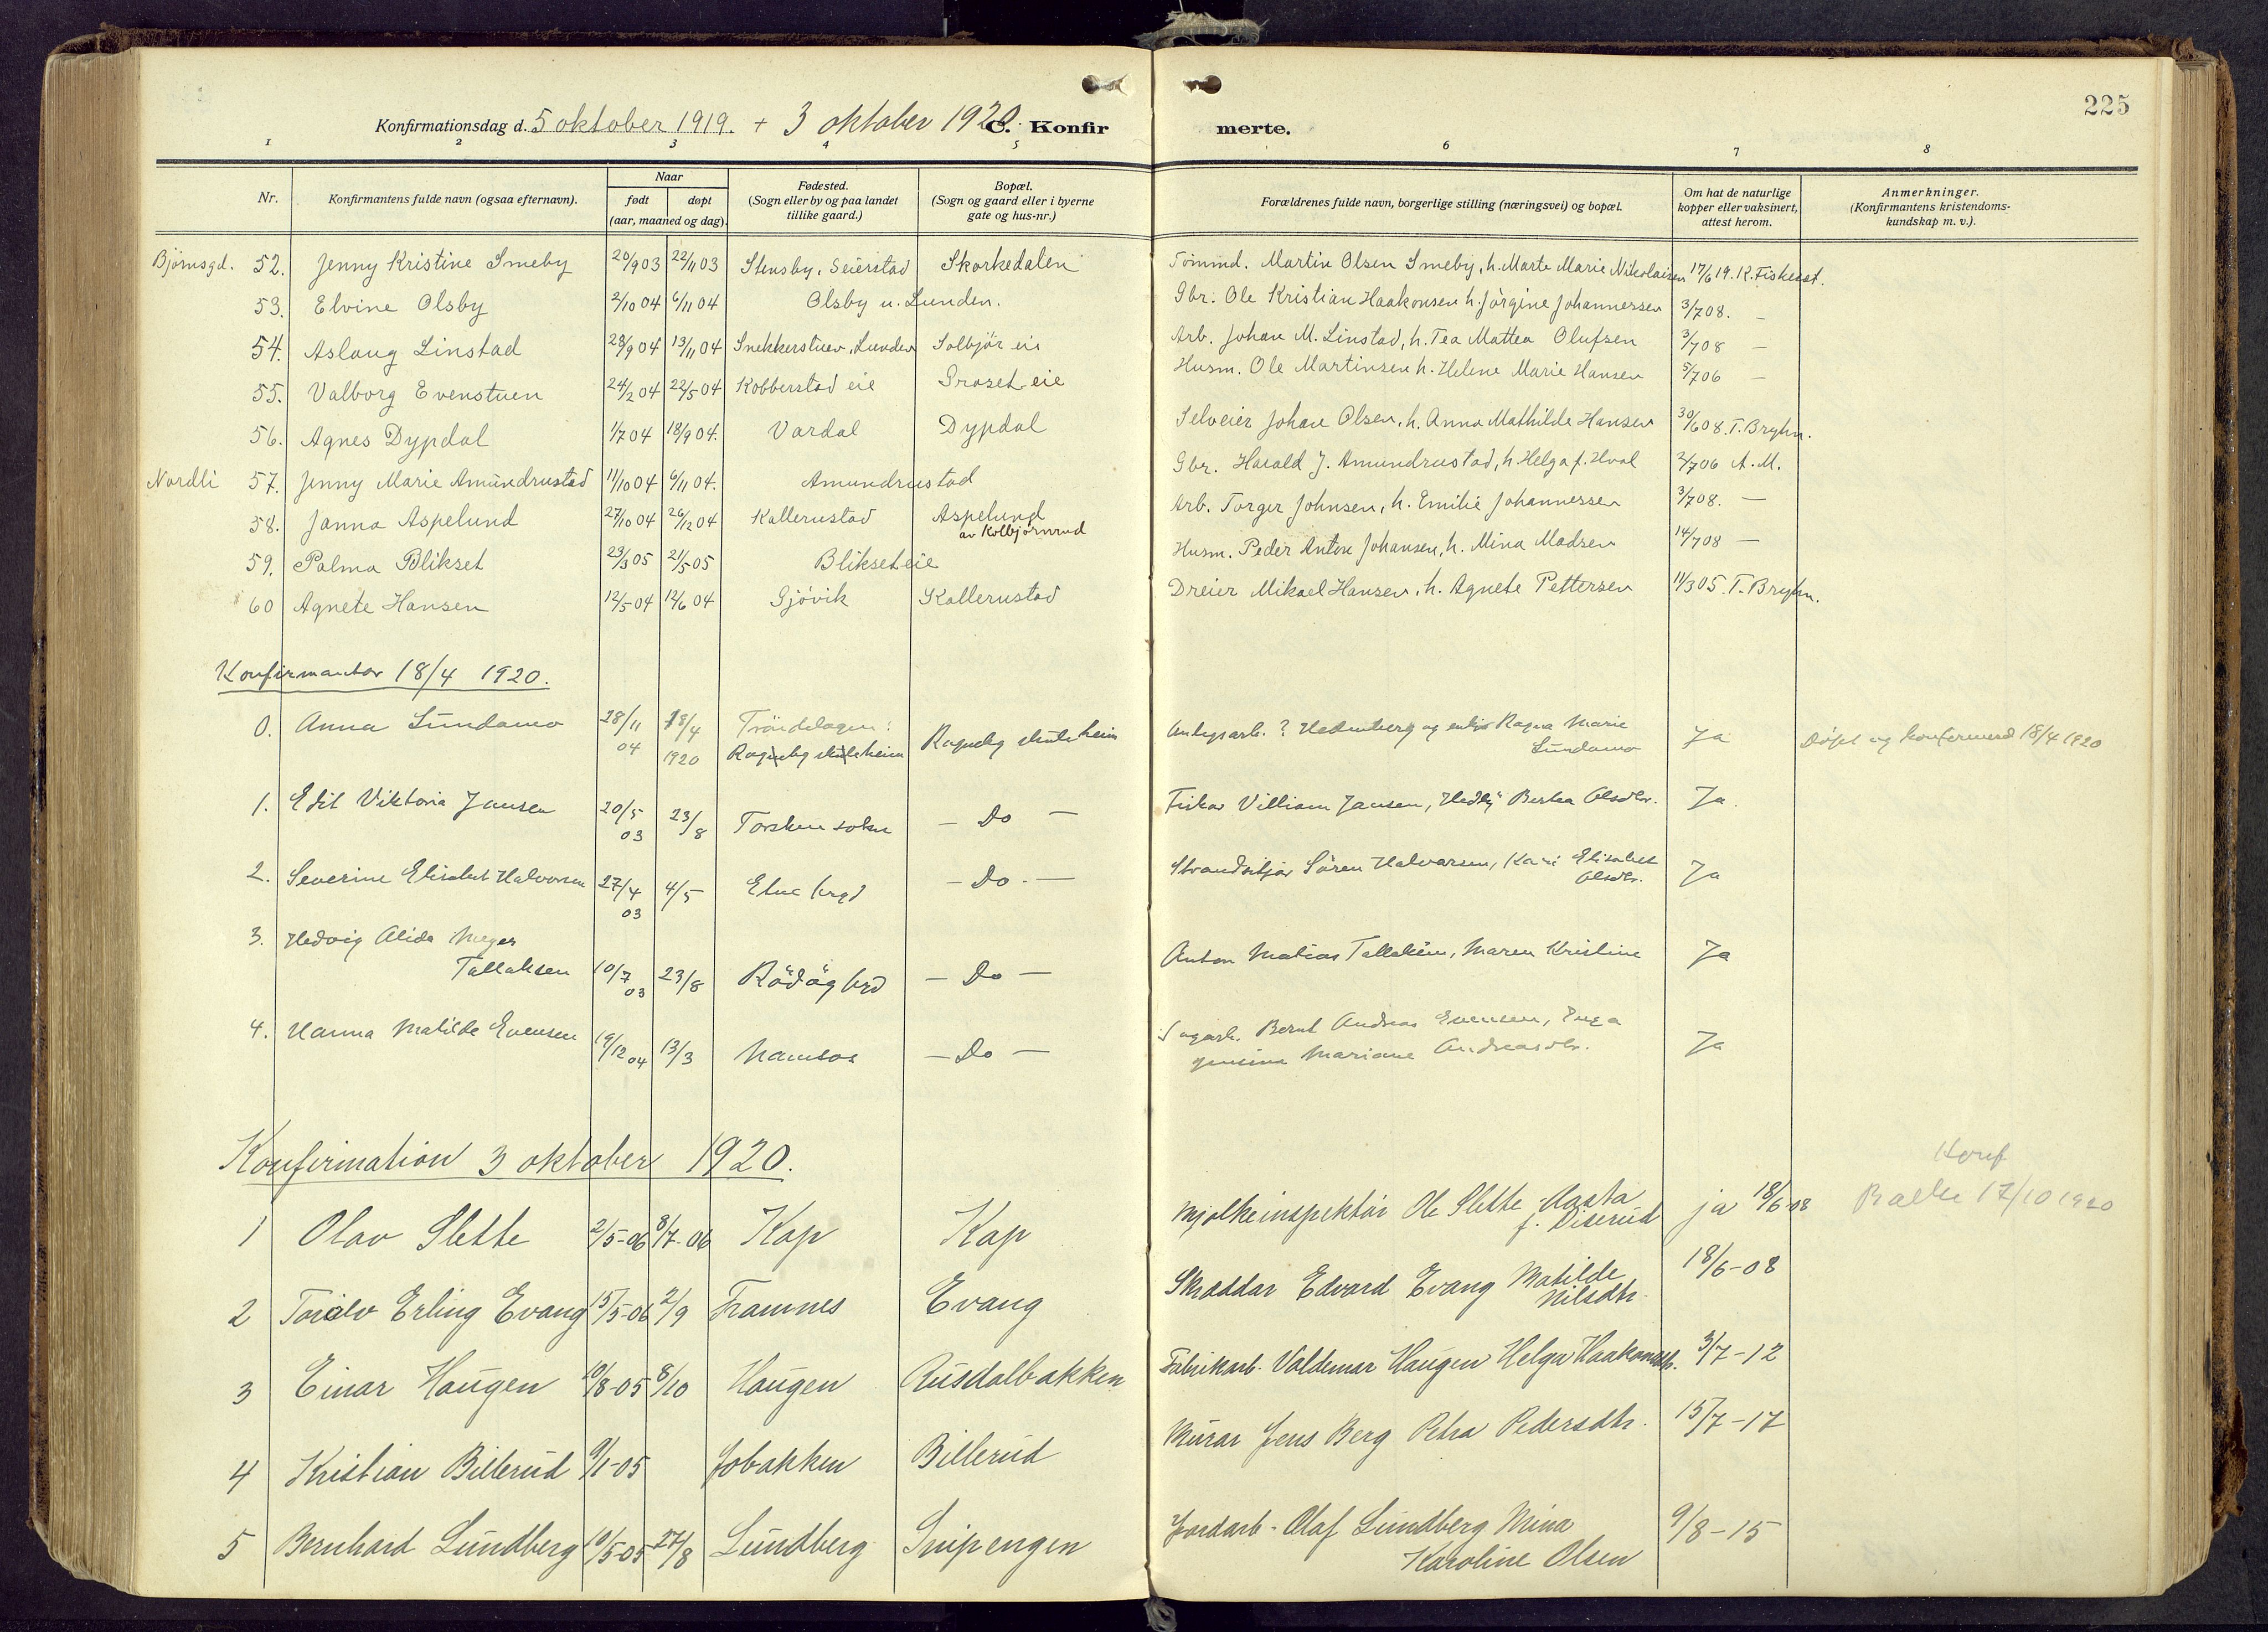 225
Konfirmationsdag d. 5 oktober 1919. + 3 oktober 1920. C. Konfirmerte.
1 2 3 4 5 6 7 8
Nr. Konfirmantens fulde navn (ogsaa efternavn). Naar født døpt (aar, maaned og dag). Fødested. (Sogn eller by og paa landet tillike gaard.) Bopæl. (Sogn og gaard eller i byerne gate og hus-nr.) Forældrenes fulde navn, borgerlige stilling (næringsvei) og bopæl. Om hat de naturlige kopper eller vaksinert, attest herom. Anmerkninger. (Konfirmantens kristendomskundskap m. v.).
Björnsgd. 52. Jenny Kristine Smeby 20/9 03 22/11 03 Stensby, Seierstad Skorkedalen Tömmd. Martin Olsen Smeby, h. Marte Marie Nikolaisen 17/6 19. K. Fiskeset.
53. Elvine Olsby 2/10 04 6/11 04 Olsby u. Lunden. Gbr. Ole Kristian Haakonsen h. Jörgine Johannessen 3/7 08. —
54. Aslaug Linstad 28/9 04 13/11 04 Snekkerstuen, Lunden Solbjör eie Arb. Johan M. Linstad, h. Tea Mattea Olufsen 3/7 08 —
55. Valborg Evenstuen 24/2 04 22/5 04 Kobberstad eie Groset eie Husm. Ole Martinsen h. Helene Marie Hansen 5/7 06 —
56. Agnes Dypdal 1/7 04 18/9 04. Vardal Dypdal Selveier Johan Olsen, h. Anna Mathilde Hansen 30/6 08. T. Bryhn.
Nordli 57. Jenny Marie Amundrustad 11/10 04 6/11 04. Amundrustad Gbr. Harald J. Amundrustad, h. Helga f. Hval 2/7 06 A. M.
58. Janna Aspelund 27/10 04 26/12 04 Kallerustad Aspelund av Kolbjörnrud Arb. Torger Johnsen, h. Emilie Johannessen 3/7 08. —
59. Palma Blikset 23/3 05 21/5 05 Blikset eie Husm. Peder Anton Johansen, h. Mina Madsen 14/7 08 —
60 Agnete Hansen 12/5 04 12/6 04 Gjövik Kallerustad Dreier Mikael Hansen, h. Agnete Pettersen 11/3 05. T. Bryhn.
Konfirmantar 18/4 1920.
0. Anna Lundamo 28/11 04 18/4 1920 Tröndelagen: Ragneby skuleheim Ragneby skuleheim ? Hedenberg og Ragna Marie Lundamo Ja Döpt og konfirmerd 18/4 1920
1. Edit Viktoria Jansen 20/5 03 23/8 Torsken sokn — Do — Fiskar Villiam Jansen, Hedly Bertea Olsdtr. Ja.
2. Severine Elisabet Halvorsen 27/4 03 4/5 — Do. — Strandsitjar Sören Halvorsen, Kari Elisabet Olsdtr. Ja
3. Hedvig Alida Meyer Tallaksen 10/7 03 23/8 Rödög — Do — Anton Matias Tallaksen, Maren Kristine Ja
4. Hanna Matilde Evensen 19/12 04 13/3 Namsos — Do — Sagarb. Bernt Andreas Evensen, Inga Jensine Mariane Andreasdtr. Ja
Konfirmation 3 oktober 1920.
1 Olav Slette 2/5-06 8/7-06 Kap Kap Mjolkeinspektör Ole Slette - Aasta f. Diserud ja 18/6 08 Konf Balke 17/10 1920
2 Torolv Erling Evang 15/5-06 2/9 Framnes Evang Skræddar Edvard Evang Matilde Nilsdtr. 18/6-08
3 Einar Haugen 10/8-05 8/10 Haugen Rusdalbakken Fabrikarb. Valdemar Haugen Helga Haakonsdtr. 3/7-12
4 Kristian Billerud 9/1-05 Jobakken Billerud Murar Jens Berg Petra Pedersdtr. 15/7-17
5 Bernhard Lundberg 10/5-05 27/8 Lundberg Snipengen Jordarb - Olaf Lundberg Mina Karoline Olsen 9/8-15